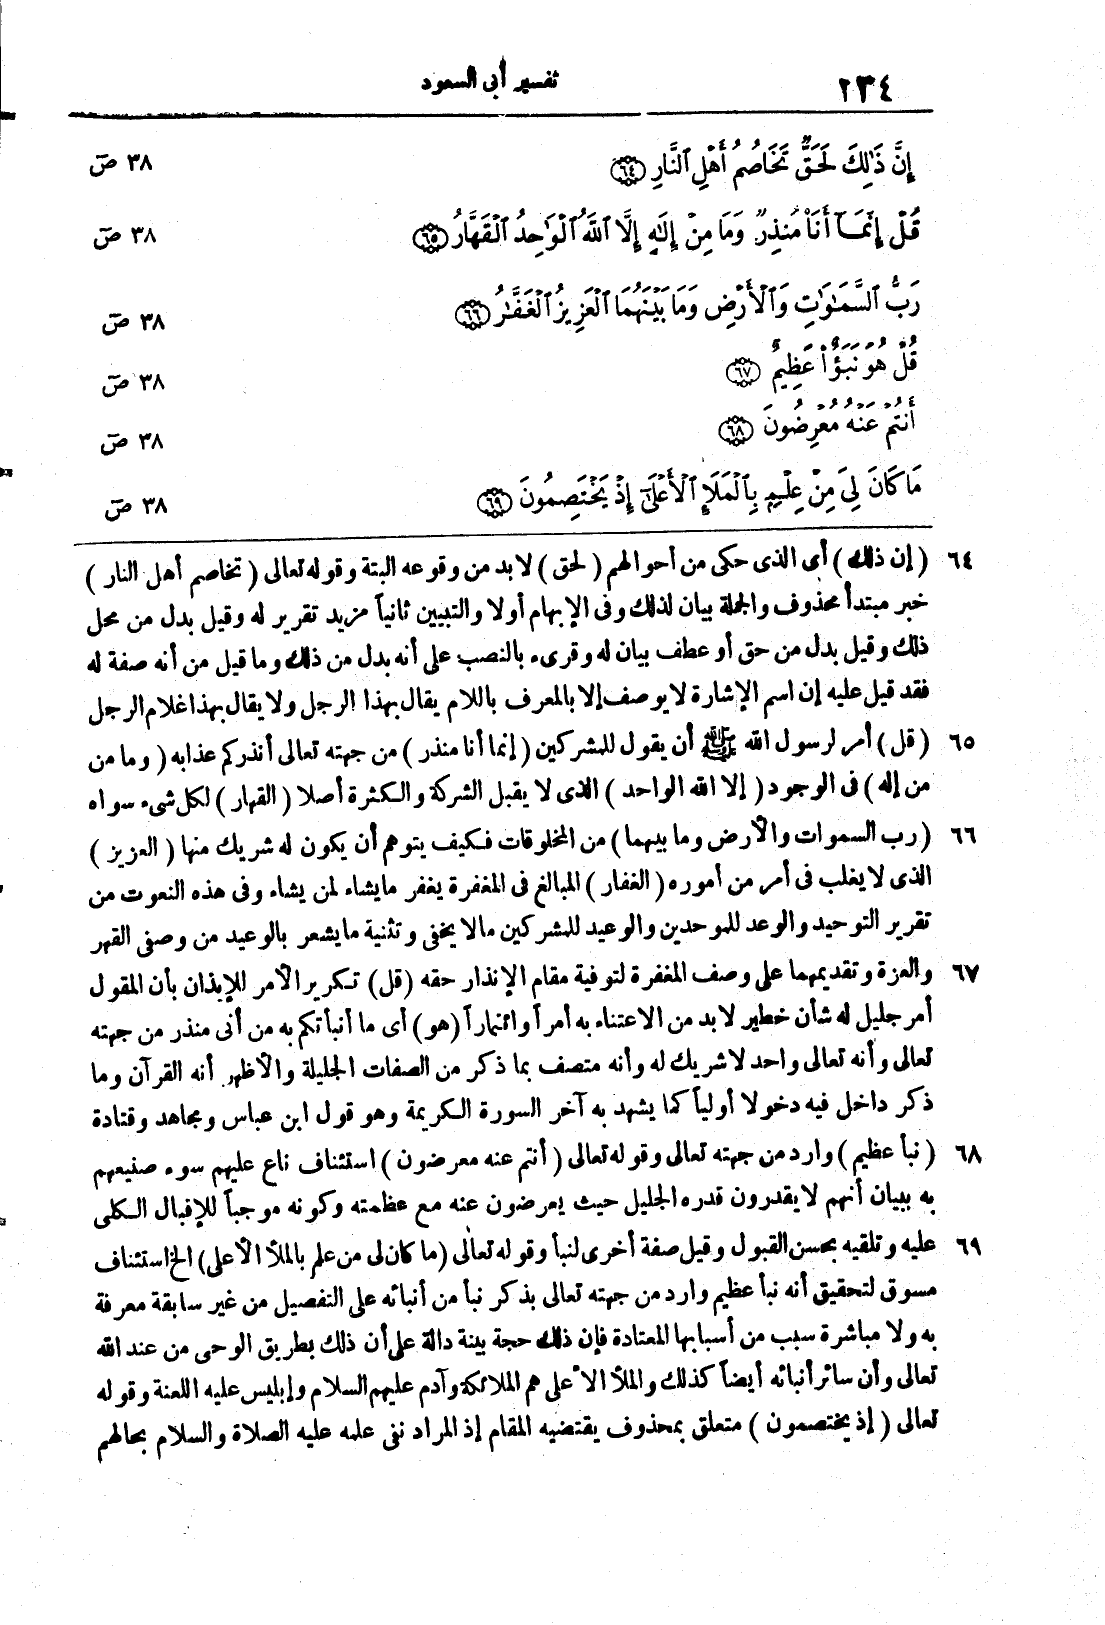 ٢٣٤
تفسير أبى السعود
إِنَّ ذَٰلِكَ لَحَقٌّ تَخَاصُمُ أَهْلِ ٱلنَّارِ ٦٤
٣٨ صٓ
قُلْ إِنَّمَآ أَنَا۠ مُنذِرٌ ۖ وَمَا مِنْ إِلَٰهٍ إِلَّا ٱللَّهُ ٱلْوَٰحِدُ ٱلْقَهَّارُ ٦٥
٣٨ صٓ
رَبُّ ٱلسَّمَٰوَٰتِ وَٱلْأَرْضِ وَمَا بَيْنَهُمَا ٱلْعَزِيزُ ٱلْغَفَّٰرُ ٦٦
٣٨ صٓ
قُلْ هُوَ نَبَؤٌا۟ عَظِيمٌ ٦٧
٣٨ صٓ
أَنتُمْ عَنْهُ مُعْرِضُونَ ٦٨
٣٨ صٓ
مَا كَانَ لِىَ مِنْ عِلْمٍۭ بِٱلْمَلَإِ ٱلْأَعْلَىٰٓ إِذْ يَخْتَصِمُونَ ٦٩
٣٨ صٓ
٦٤ ( إن ذلك ) أى الذى حكى من أحوالهم ( لحق ) لابد من وقوعه البتة وقوله تعالى ( تخاصم أهل النار )
خبر مبتدأ محذوف والجملة بيان لذلك وفى الإبهام أولا والتبيين ثانياً مزيد تقرير له وقيل بدل من محل
ذلك وقيل بدل من حق أو عطف بيان له وقرىء بالنصب على أنه بدل من ذلك وما قيل من أنه صفة له
فقد قيل عليه إن اسم الإشارة لا يوصف إلا بالمعرف باللام يقال بهذا الرجل ولا يقال بهذا غلام الرجل
٦٥ ( قل ) أمر لرسول الله ﷺ أن يقول للمشركين ( إنما أنا منذر ) من جهته تعالى أنذركم عذابه ( وما من
من إله ) فى الوجود ( إلا الله الواحد ) الذى لا يقبل الشركة والكثرة أصلا ( القهار ) لكل شىء سواه
٦٦ ( رب السموات والأرض وما بينهما ) من المخلوقات فكيف يتوهم أن يكون له شريك منها ( العزيز )
الذى لا يغلب فى أمر من أموره ( الغفار ) المبالغ فى المغفرة يغفر ما يشاء لمن يشاء وفى هذه النعوت من
تقرير التوحيد والوعد للموحدين والوعيد للمشركين مالا يخفى وتثنية ما يشعر بالوعيد من وصفى القهر
٦٧ والعزة وتقديمهما على وصف المغفرة لتوفية مقام الإنذار حقه (قل) تكرير الأمر للإيذان بأن المقول
أمر جليل له شأن خطير لابد من الاعتناء به أمراً وائتماراً (هو) أى ما أنبأتكم به من أنى منذر من جهته
تعالى وأنه تعالى واحد لاشريك له وأنه متصف بما ذكر من الصفات الجليلة والأظهر أنه القرآن وما
ذكر داخل فيه دخولا أولياً كما يشهد به آخر السورة الكريمة وهو قول ابن عباس ومجاهد وقتادة
٦٨ ( نبأ عظيم ) وارد من جهته تعالى وقوله تعالى ( أنتم عنه معرضون ) استئناف ناع عليهم سوء صنيعهم
به ببيان أنهم لا يقدرون قدره الجليل حيث يعرضون عنه مع عظمته وكونه موجباً للإقبال الكلى
٦٩ عليه وتلقيه بحسن القبول وقيل صفة أخرى لنبأ وقوله تعالى (ما كان لى من علم بالملأ الأعلى) الخ استئناف
مسوق لتحقيق أنه نبأ عظيم وارد من جهته تعالى بذكر نبأ من أنبائه على التفصيل من غير سابقة معرفة
به ولا مباشرة سبب من أسبابها المعتادة فإن ذلك حجة بينة دالة على أن ذلك بطريق الوحى من عند الله
تعالى وأن سائر أنبائه أيضاً كذلك والملأ الأعلى هم الملائكة وآدم عليهم السلام وإبليس عليه اللعنة وقوله
تعالى ( إذ يختصمون ) متعلق بمحذوف يقتضيه المقام إذ المراد نفى علمه عليه الصلاة والسلام بحالهم